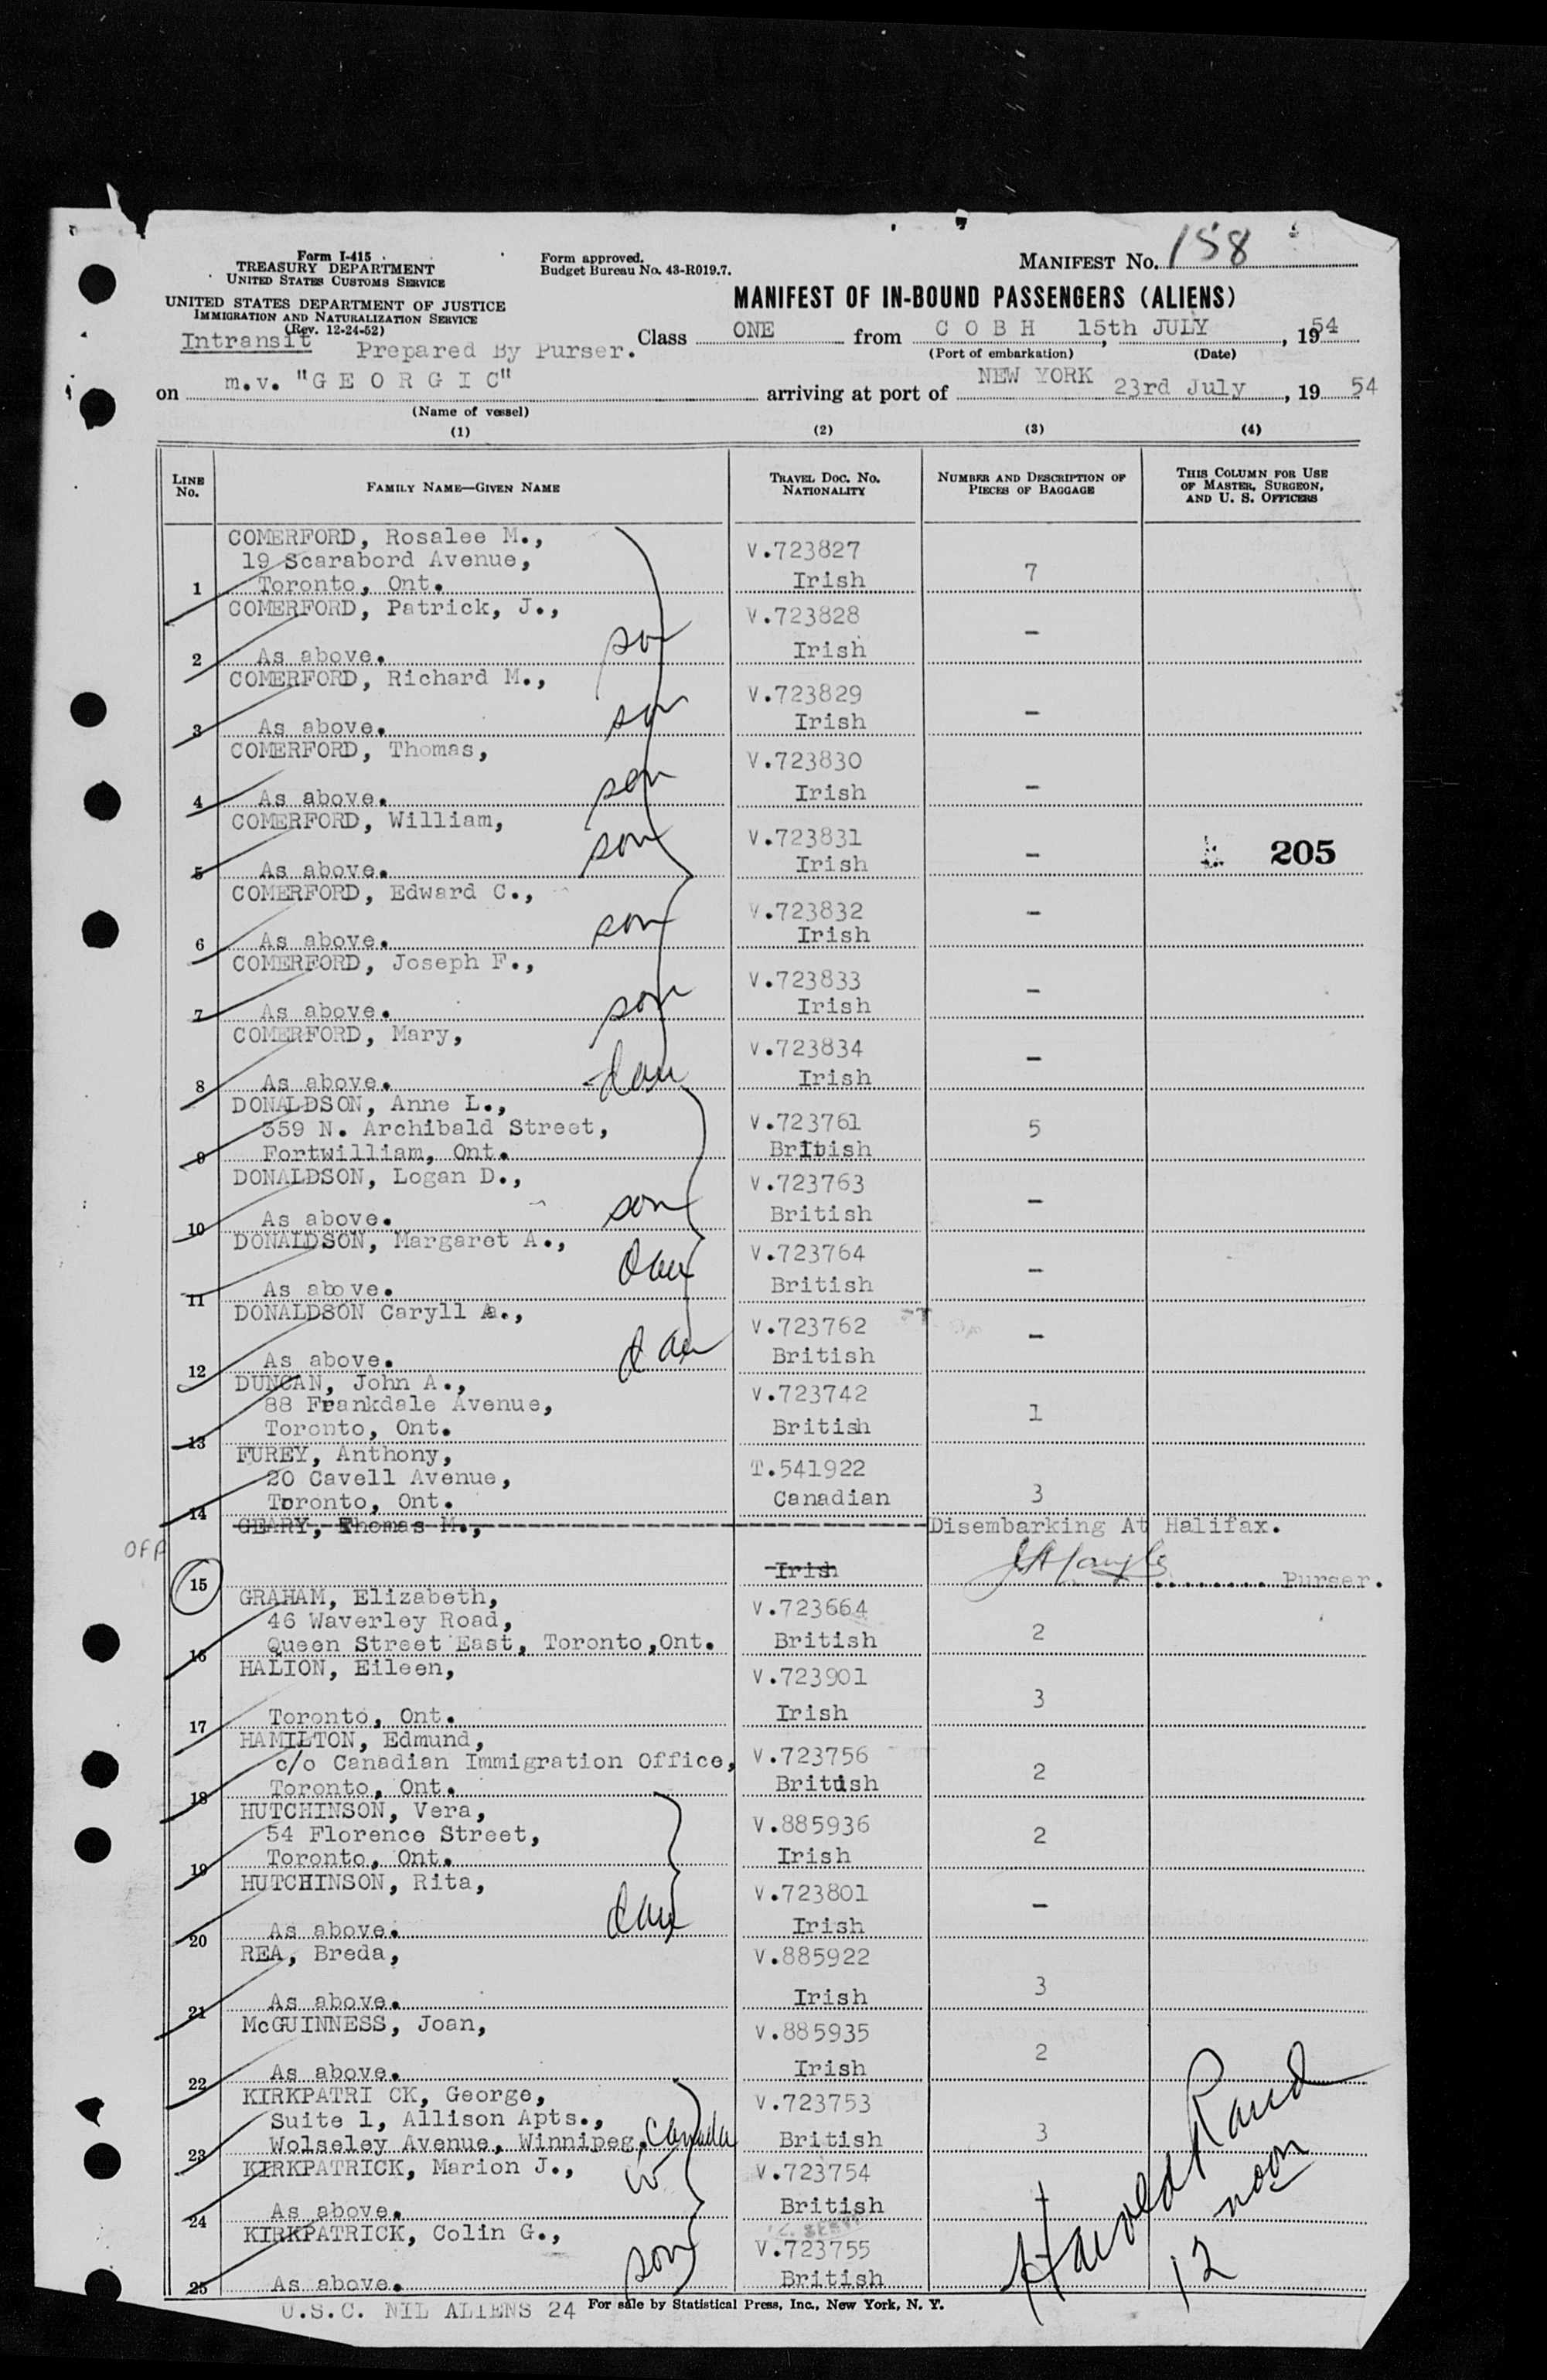 Form I-415
TREASURY DEPARTMENT
UNITED STATES CUSTOMS SERVICE
UNITED STATES DEPARTMENT OF JUSTICE
IMMIGRATION AND NATURALIZATION SERVICE
(Rev. 12-24-52)
Form approved.
Budget Bureau No. 43-R019.7.
MANIFEST No. 158
MANIFEST OF IN-BOUND PASSENGERS (ALIENS)
Intransit Prepared By Purser.
Class ONE from C O B H 15th JULY, 1954
(Port of embarkation) (Date)
on m.v. "G E O R G I C" arriving at port of NEW YORK 23rd July, 19 54
(Name of vessel)
(1) (2) (3) (4)
LINE No. FAMILY NAME—GIVEN NAME TRAVEL DOC. No. NATIONALITY NUMBER AND DESCRIPTION OF PIECES OF BAGGAGE THIS COLUMN FOR USE OF MASTER, SURGEON, AND U. S. OFFICERS
COMERFORD, Rosalee M.,
19 Scarabord Avenue, V.723827
1 Toronto, Ont. Irish 7
COMERFORD, Patrick, J., V.723828
2 As above. son Irish -
COMERFORD, Richard M., V.723829
3 As above. son Irish -
COMERFORD, Thomas, V.723830
4 As above. son Irish -
COMERFORD, William, V.723831
5 As above. son Irish - 205
COMERFORD, Edward C., V.723832
6 As above. son Irish -
COMERFORD, Joseph F., V.723833
7 As above. son Irish -
COMERFORD, Mary, V.723834
8 As above. dau Irish -
DONALDSON, Anne L.,
359 N. Archibald Street, V.723761 5
9 Fortwilliam, Ont. British
DONALDSON, Logan D., V.723763
10 As above. son British -
DONALDSON, Margaret A., V.723764
11 As above. dau British -
DONALDSON Caryll A., V.723762
12 As above. dau British -
DUNCAN, John A., V.723742
88 Frankdale Avenue, 1
13 Toronto, Ont. British
FUREY, Anthony, T.541922
20 Cavell Avenue,
14 Toronto, Ont. Canadian 3
GEARY, Thomas M., Disembarking At Halifax.
OFF
15 Irish Purser.
GRAHAM, Elizabeth, V.723664
46 Waverley Road,
16 Queen Street East, Toronto,Ont. British 2
HALION, Eileen, V.723901
17 Toronto, Ont. Irish 3
HAMILTON, Edmund, V.723756
c/o Canadian Immigration Office,
18 Toronto, Ont. British 2
HUTCHINSON, Vera, V.885936
54 Florence Street, 2
19 Toronto, Ont. Irish
HUTCHINSON, Rita, V.723801
20 As above. dau Irish -
REA, Breda, V.885922
21 As above. Irish 3
McGUINNESS, Joan, V.885935
22 As above. Irish 2
KIRKPATRI CK, George, V.723753
Suite 1, Allison Apts.,
23 Wolseley Avenue, Winnipeg, Canada British 3
KIRKPATRICK, Marion J., W V.723754
24 As above. British
KIRKPATRICK, Colin G., V.723755
25 As above. son British
Harold Rand
12 noon
U.S.C. NIL ALIENS 24 For sale by Statistical Press, Inc., New York, N. Y.